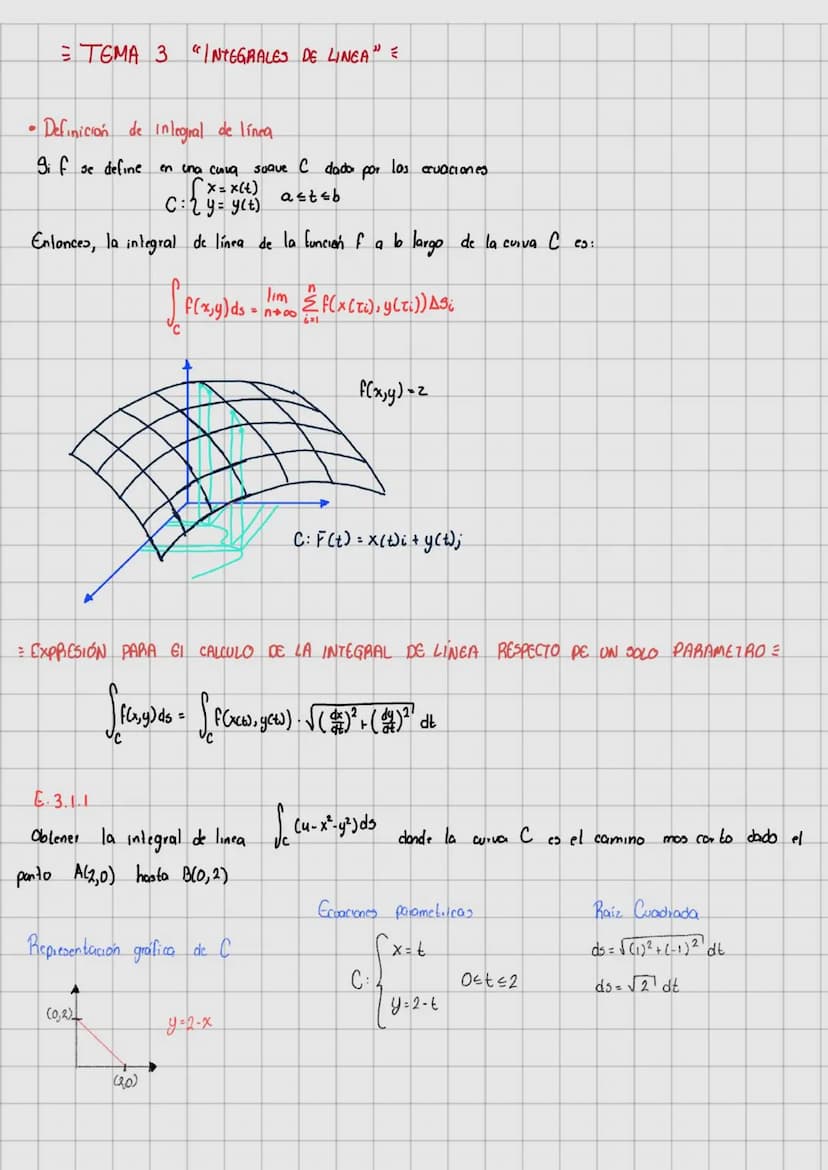 ≡ TEMA 3 "INTEGRALES DE LINEA" ≡
• Definición de integral de línea
Si f se define en una curva suave C dada por las ecuaciones
C: { x = x(t)
y = y(t) a ≤ t ≤ b
Entonces, la integral de línea de la función f a lo largo de la curva C es:
∫_C f(x,y) ds = lim_{n→∞} Σ_{i=1}^{n} f(x(τi), y(τi)) Δsi
f(x,y) = z
C: r̄(t) = x(t)i + y(t)j
≡ EXPRESIÓN PARA El CALCULO DE LA INTEGRAL DE LÍNEA RESPECTO DE UN SOLO PARAMETRO ≡
∫_C f(x,y) ds = ∫_C f(x(t), y(t)) · √((dx/dt)² + (dy/dt)²) dt
E. 3.1.1
Obtener la integral de linea ∫_C (4-x²-y²) ds donde la curva C es el camino mas corto dado el
punto A(2,0) hasta B(0,2)
Ecuaciones parametricas
Raíz Cuadrada
Representación gráfica de C
C: { x = t
y = 2-t
0 ≤ t ≤ 2
ds = √((1)² + (-1)²) dt
ds = √2 dt
(0,2)
y = 2-x
(2,0)